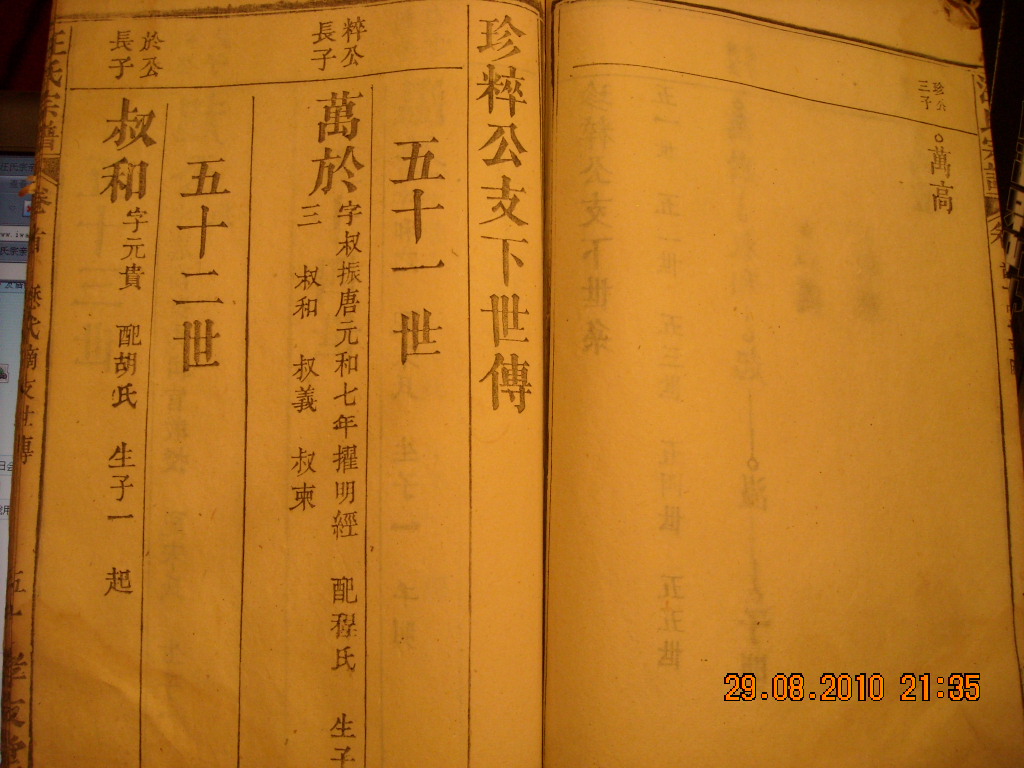 珍公
三子
○萬高
珍粹公支下世傳
五十一世
粹公
長子
萬於
字叔振唐元和七年擢明經 配程氏 生子
三 叔和 叔義 叔柬
五十二世
於公
長子
叔和
字元貴 配胡氏 生子一 起
汪氏宗譜
29.08.2010 21:35